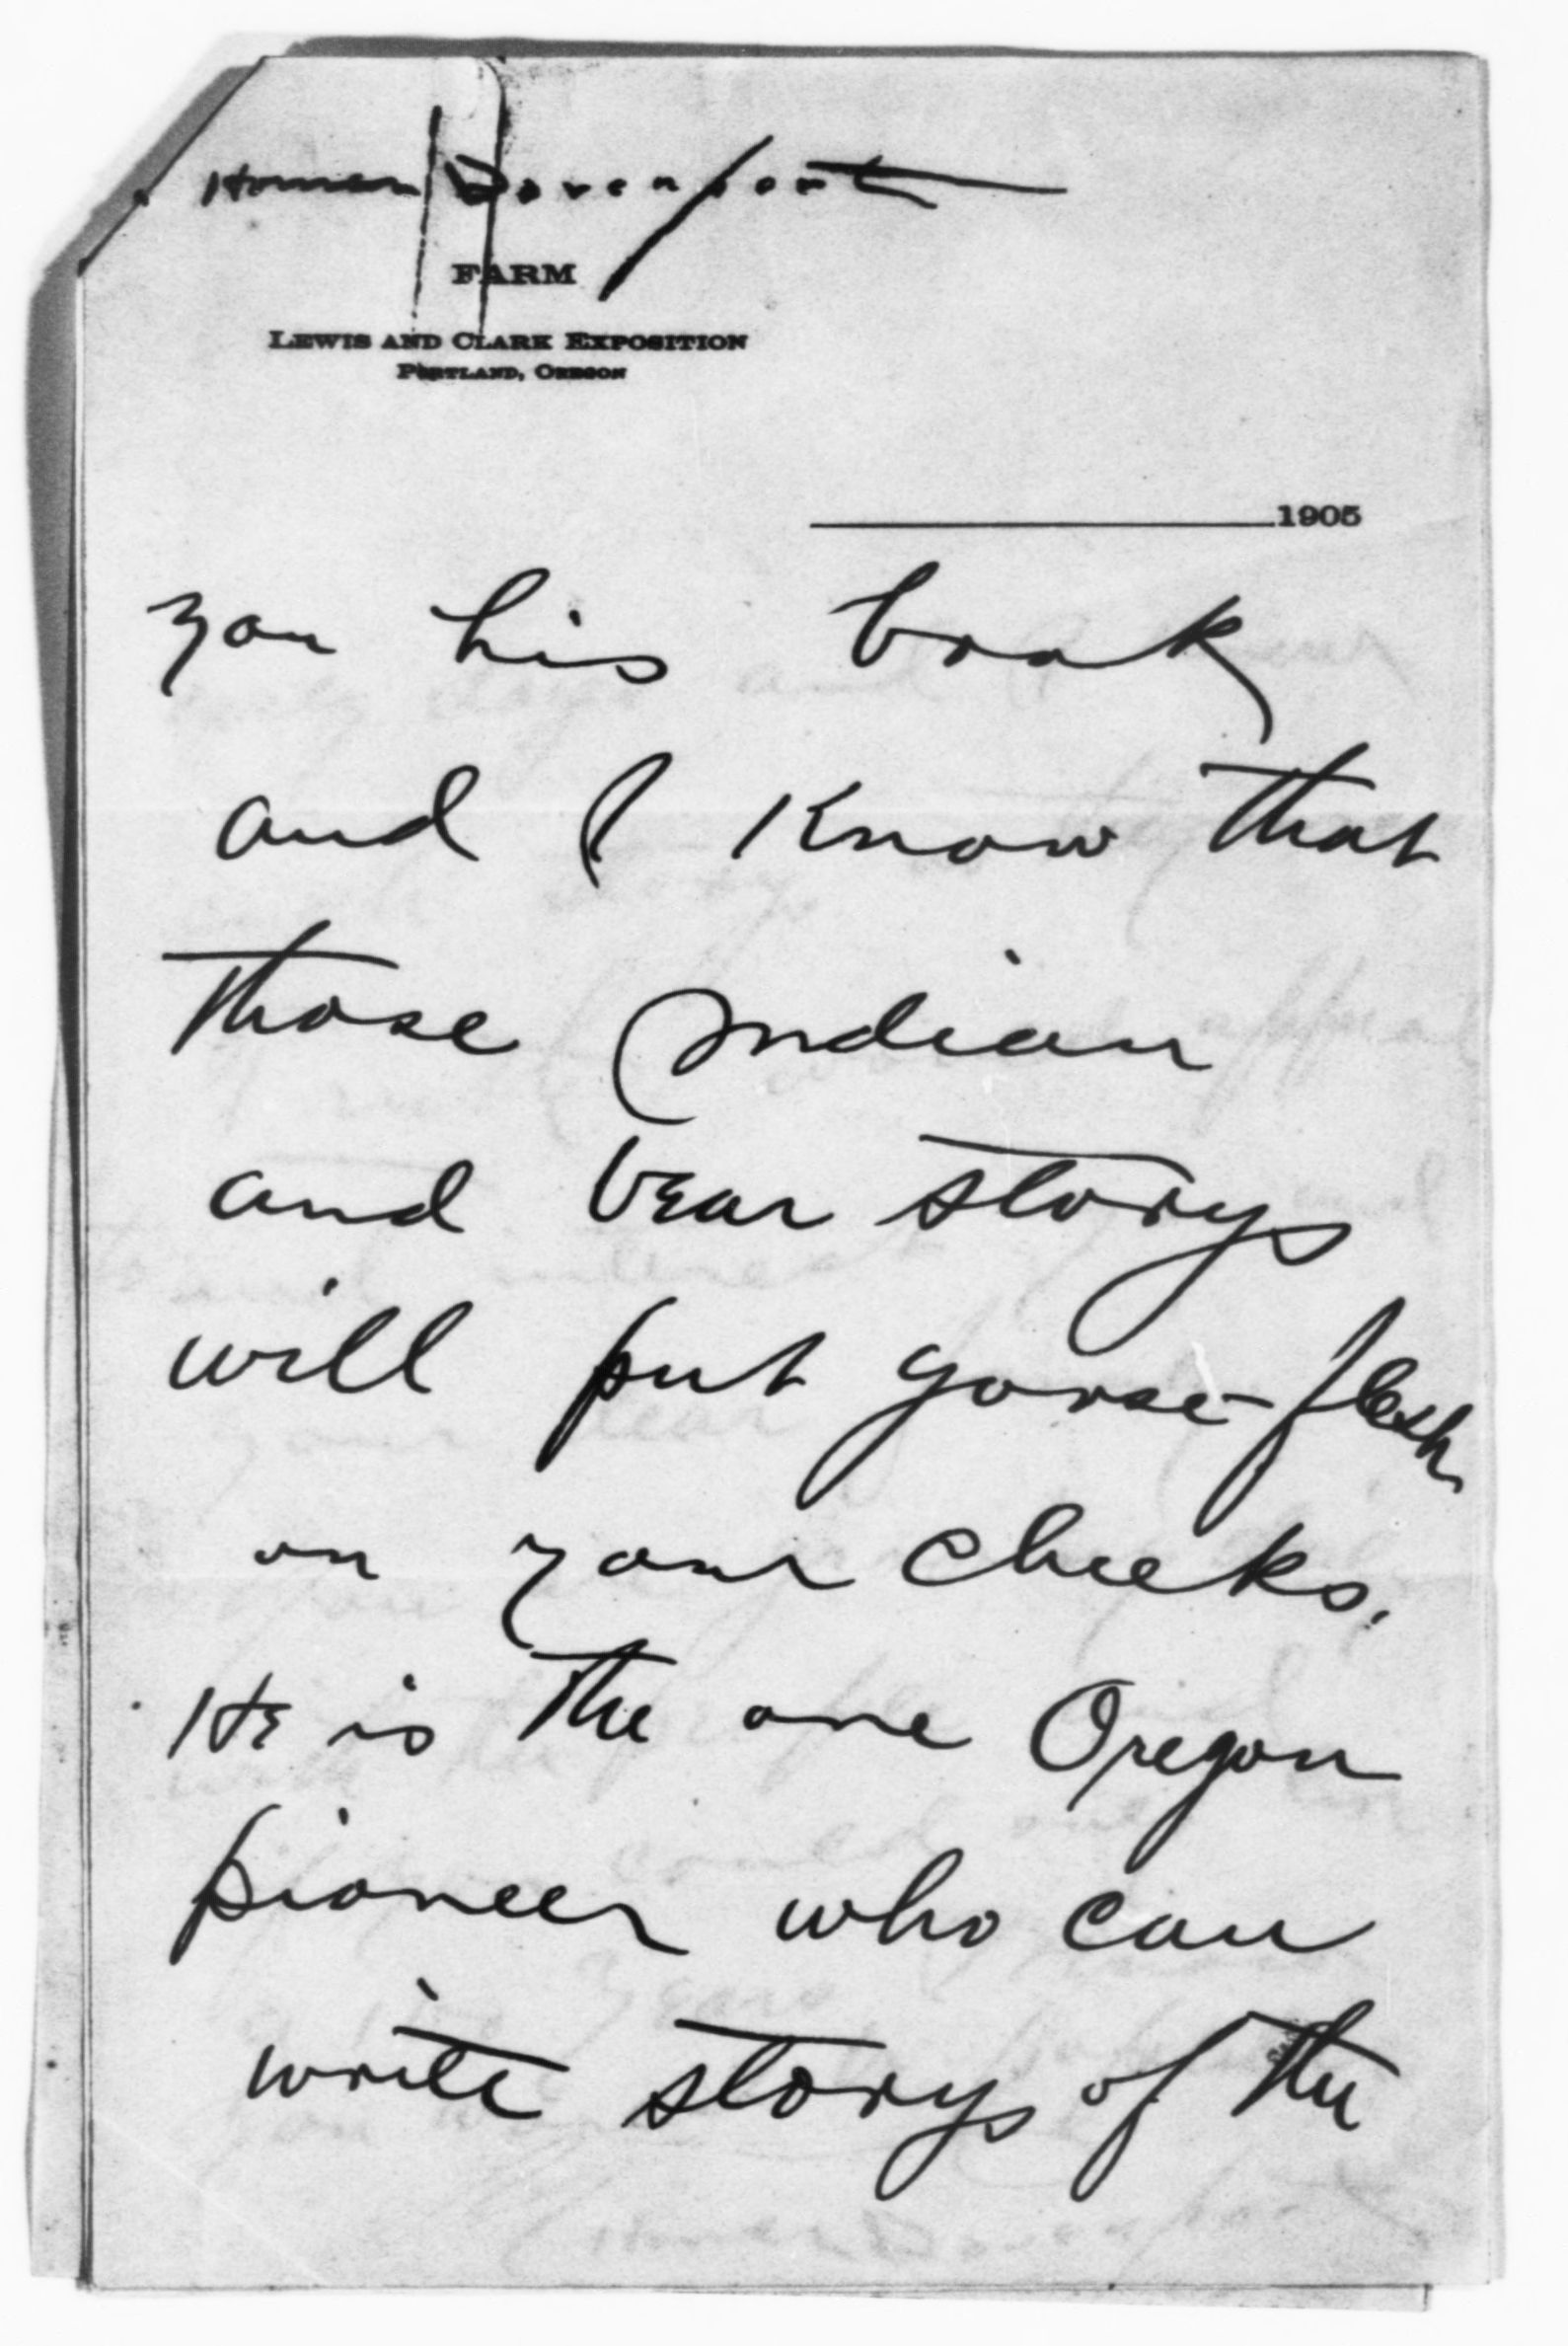 Homer Davenport
FARM
LEWIS AND CLARK EXPOSITION
PORTLAND, OREGON
1905
you his book
and I know that
those Indian
and bear storys
will put goose-flesh
on your cheeks.
He is the one Oregon
pioneer who can
write storys of the